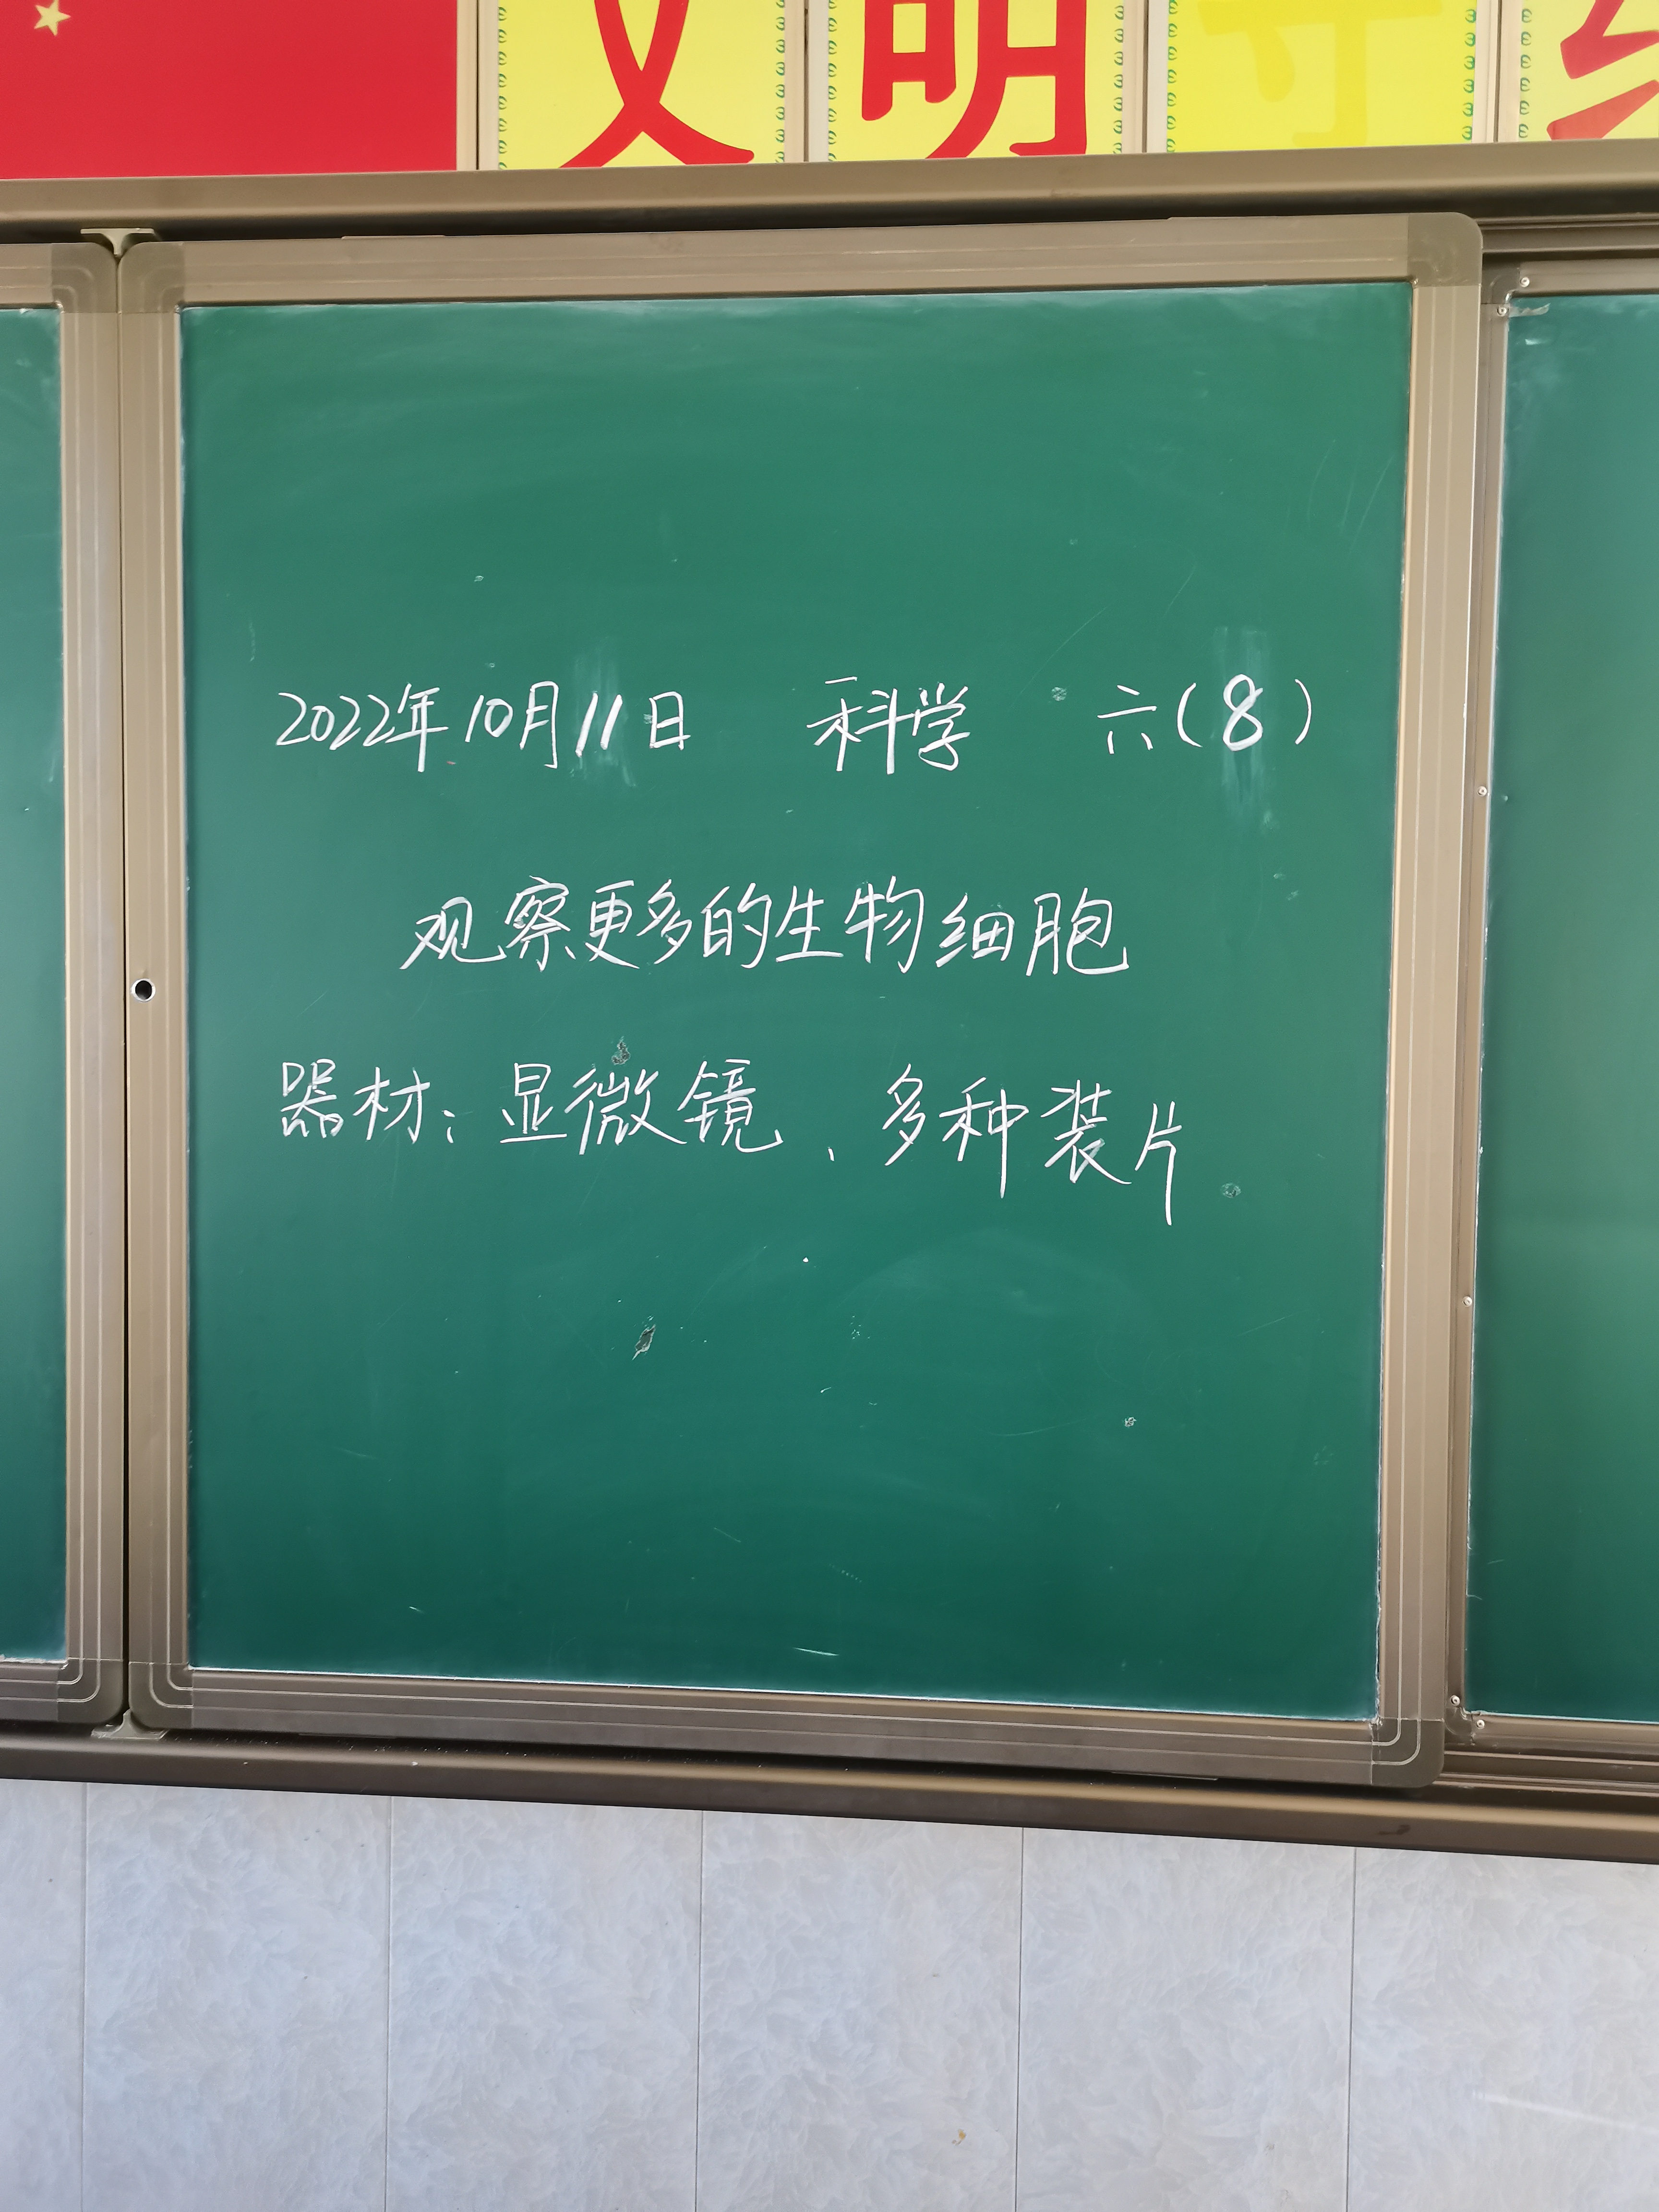 文明
2022年10月11日 科学 六(8)
观察更多的生物细胞
器材:显微镜、多种装片